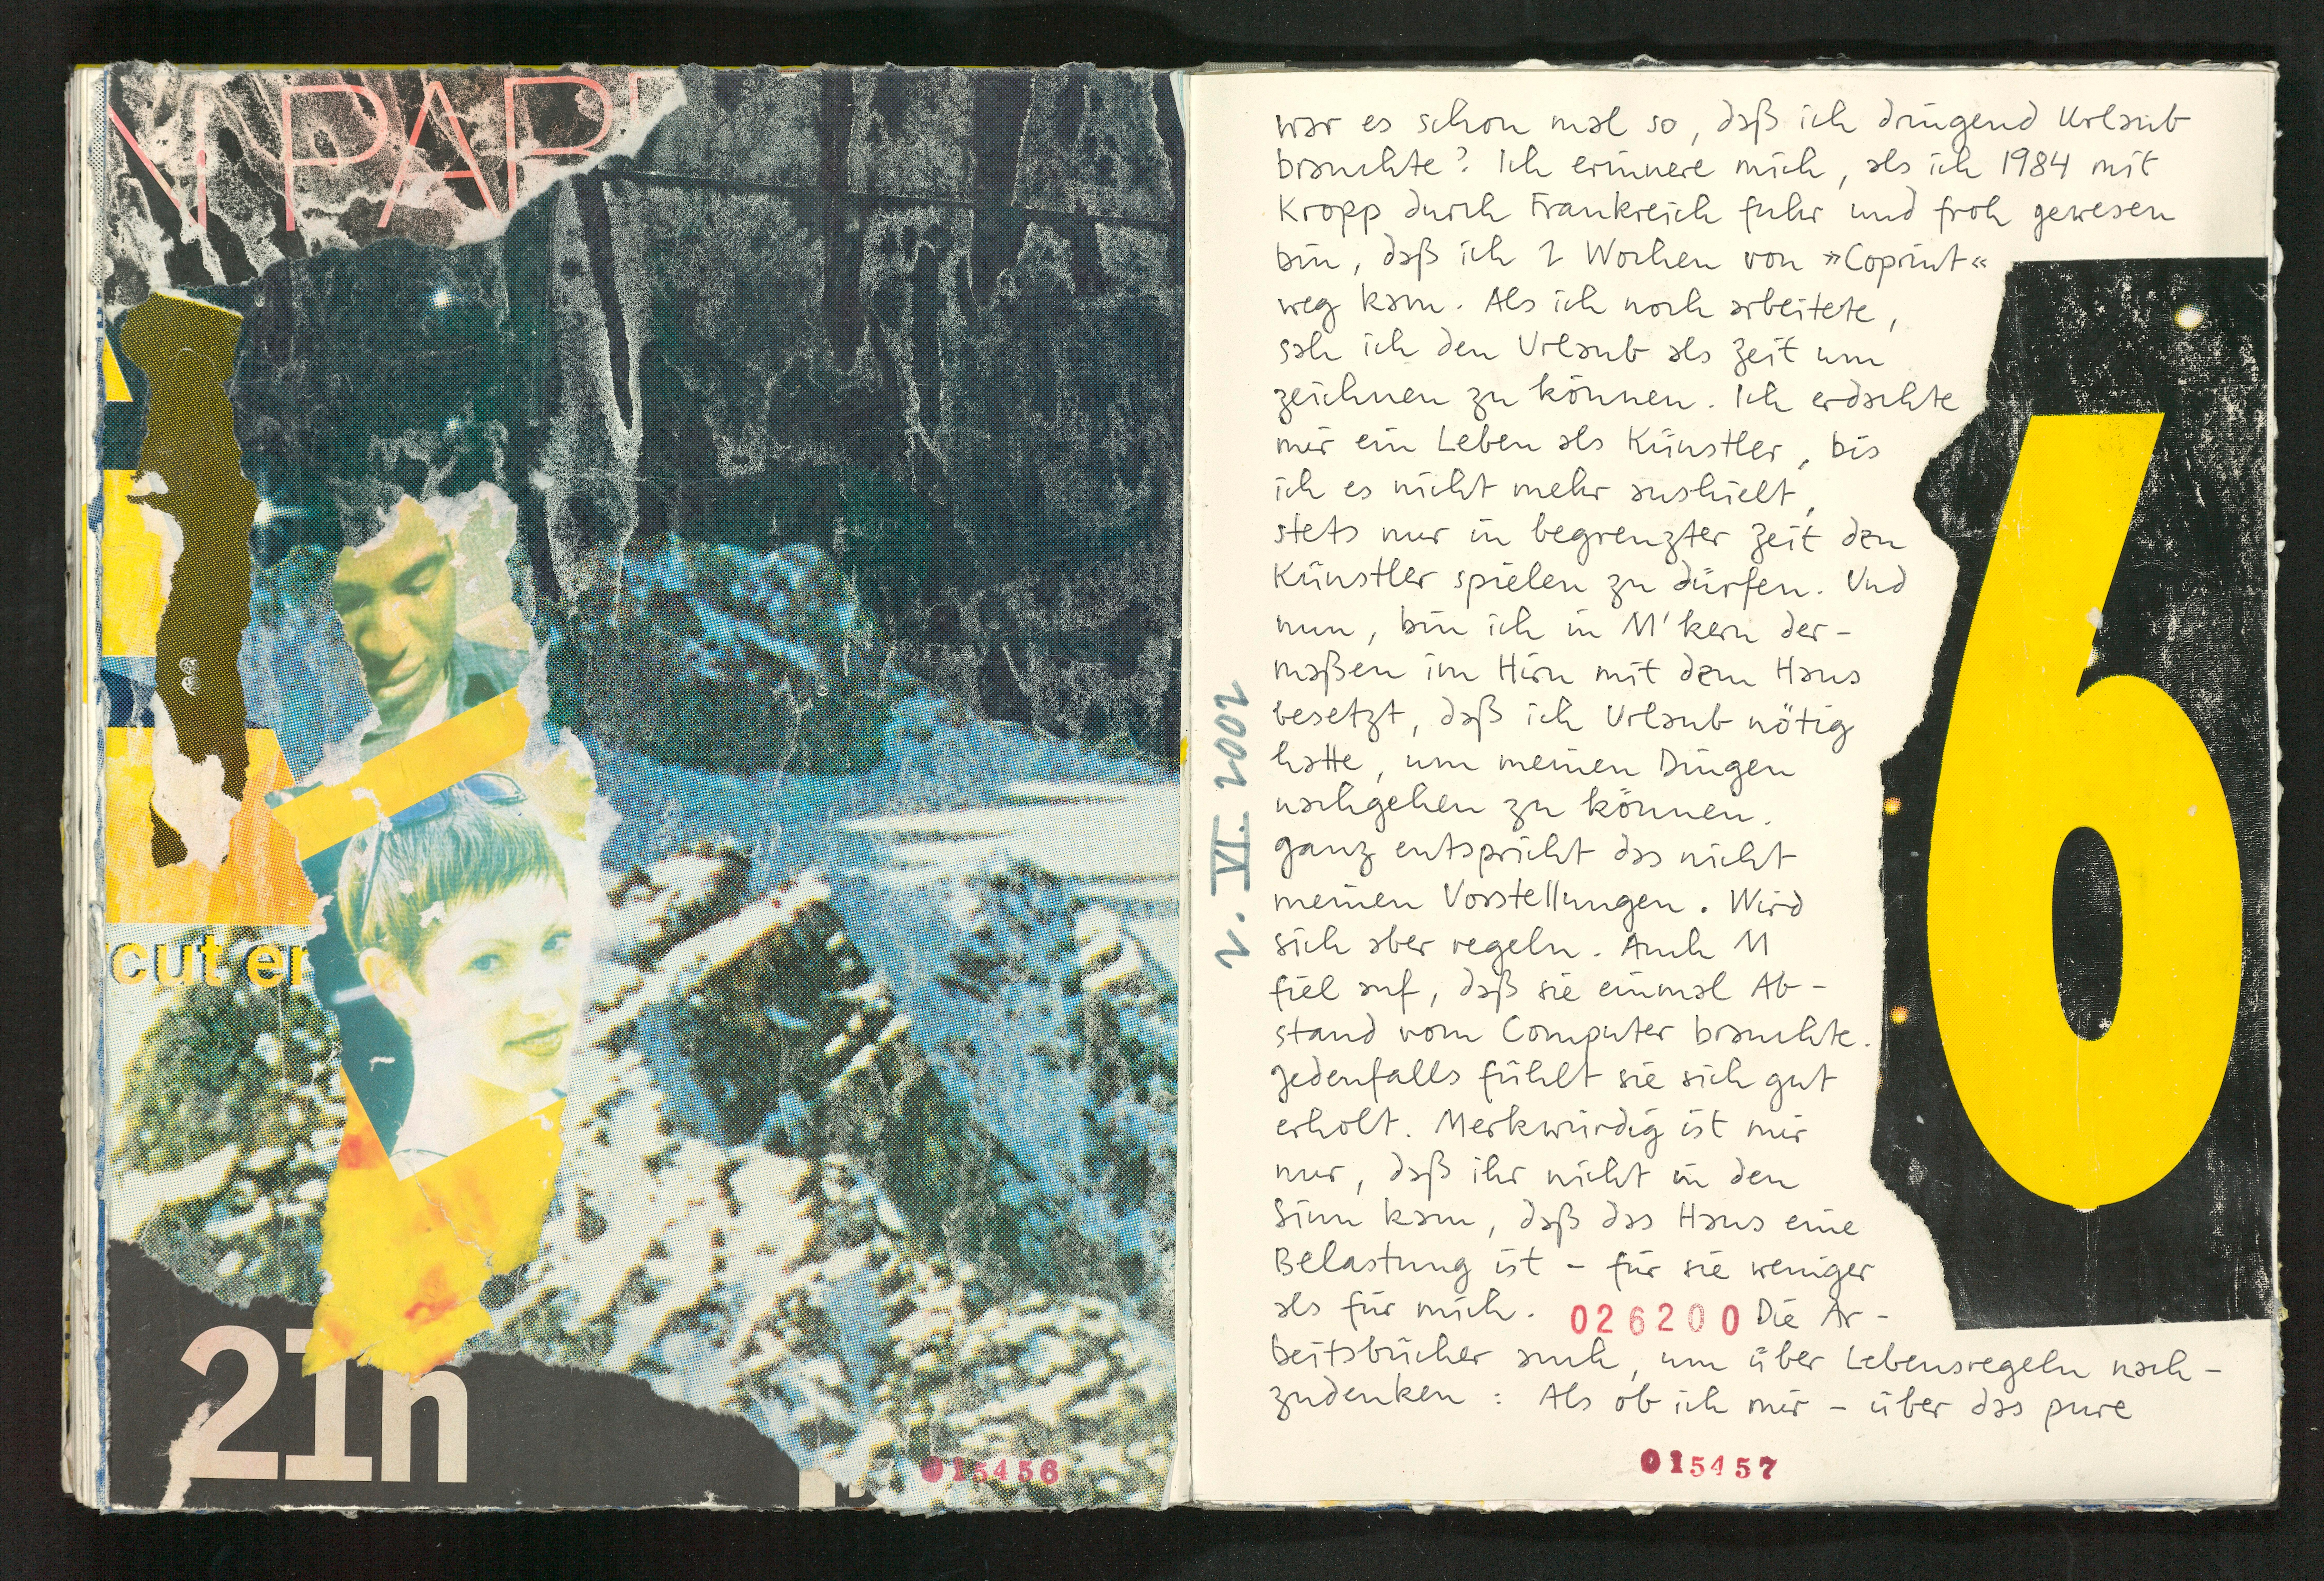 PAP
cut er
21h
015456
2. VI. 2002
war es schon mal so, daß ich dringend Urlaub
brauchte? Ich erinnere mich, als ich 1984 mit
Kropp durch Frankreich fuhr und froh gewesen
bin, daß ich 2 Wochen von »Coprint«
weg kam. Als ich noch arbeitete,
sah ich den Urlaub als Zeit um
zeichnen zu können. Ich erdachte
mir ein Leben als Künstler, bis
ich es nicht mehr aushielt,
stets nur in begrenzter Zeit den
Künstler spielen zu dürfen. Und
nun, bin ich in M'kern der-
maßen im Hirn mit dem Haus
besetzt, daß ich Urlaub nötig
hatte, um meinen Dingen
nachgehen zu können.
Ganz entspricht das nicht
meinen Vorstellungen. Wird
sich aber regeln. Auch M
fiel auf, daß sie einmal Ab-
stand vom Computer brauchte.
Jedenfalls fühlt sie sich gut
erholt. Merkwürdig ist mir
nur, daß ihr nicht in den
Sinn kam, daß das Haus eine
Belastung ist – für sie weniger
als für mich. 026200 Die Ar-
beitsbücher auch, um über Lebensregeln nach-
zudenken: Als ob ich mir – über das pure
6
015457